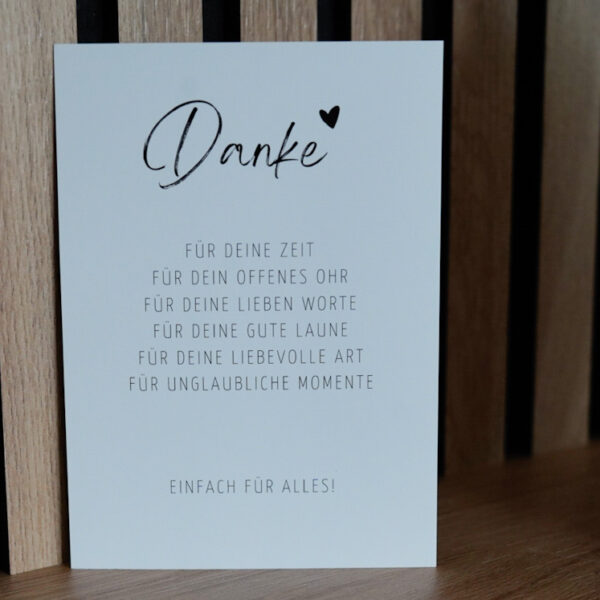 Danke
FÜR DEINE ZEIT
FÜR DEIN OFFENES OHR
FÜR DEINE LIEBEN WORTE
FÜR DEINE GUTE LAUNE
FÜR DEINE LIEBEVOLLE ART
FÜR UNGLAUBLICHE MOMENTE
EINFACH FÜR ALLES!